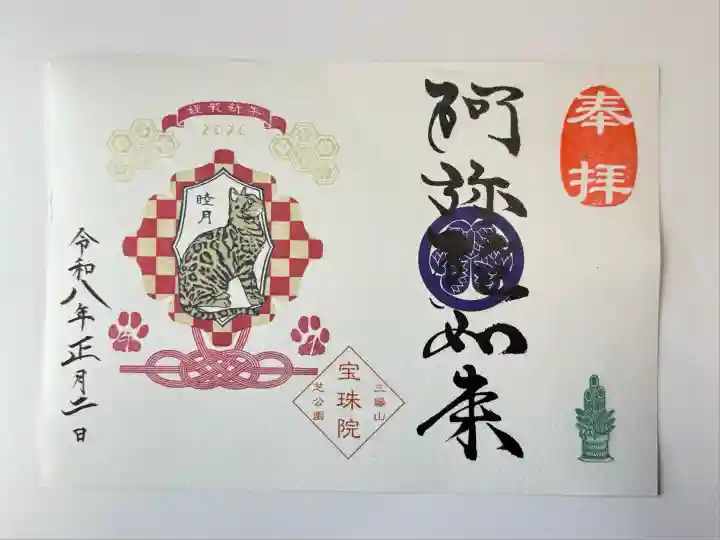 奉拝
阿弥陀如来
謹賀新年
2026
睦月
令和八年正月二日
三縁山
宝珠院
芝公園